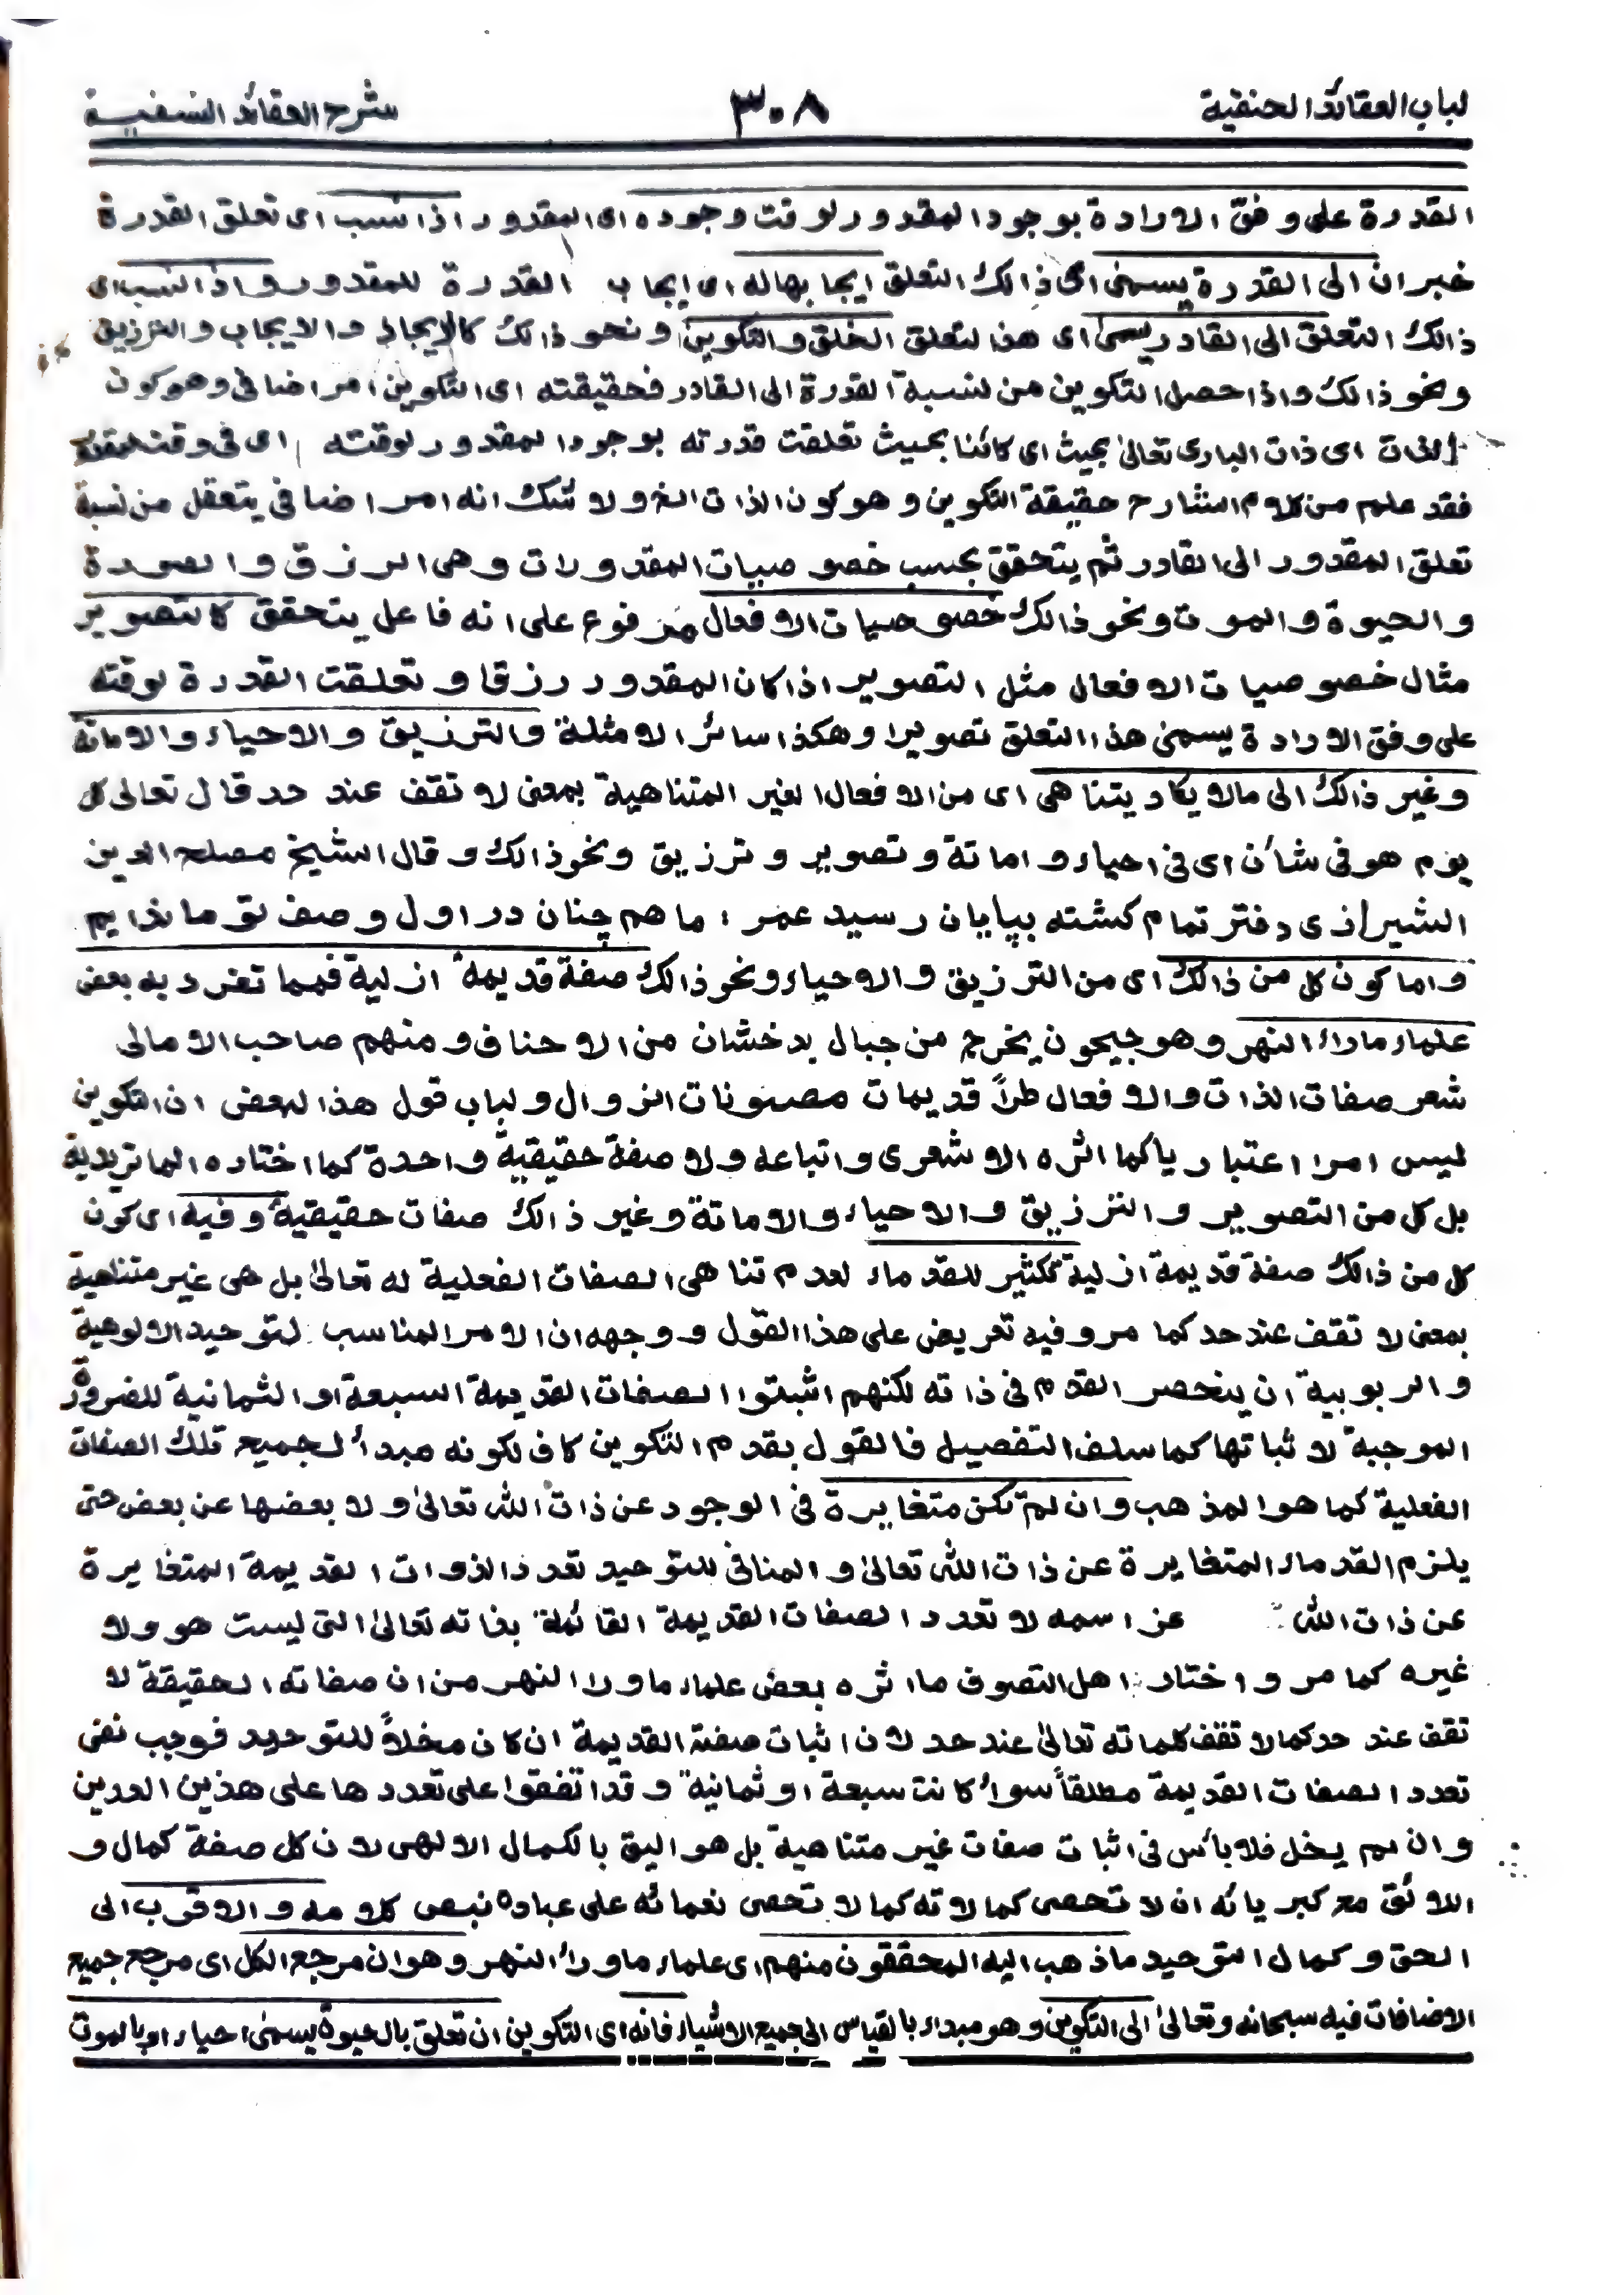 لباب العقائد الحنفية ٣٠٨ شرح العقائد النسفية
القدرة على وفق الارادة بوجود المقدور لوقت وجوده اى المقدور اذا نسب اى تعلق القدرة
خبر ان الى القدرة يسمىٰ اى ذالك التعلق ايجابها له اى ايجاب القدرة للمقدور واذا نسب اى
ذالك التعلق الى القادر يسمىٰ اى هذا التعلق الخلق والتكوين ونحو ذالك كالايجاد والايجاب والترزيق
ونحو ذالك واذا حصل التكوين من نسبة القدرة الى القادر فحقيقته اى التكوين امر اضافى وهو كون
الذات اى ذات البارى تعالىٰ بحيث اى كائنا بحيث تعلقت قدرته بوجود المقدور لوقته اى فى وقت
فقد علم من كلام الشارح حقيقة التكوين وهو كون الذات الخ ولا شك انه امر اضافى يتعقل من نسبة
تعلق المقدور الى القادر ثم يتحقق بحسب خصوصيات المقدورات وهى الرزق والصورة
والحيوة والموت ونحو ذالك خصوصيات الافعال مرفوع على انه فاعل يتحقق كالتصوير
مثال خصوصيات الافعال مثل التصوير اذا كان المقدور رزقا وتعلقت القدرة لوقته
على وفق الارادة يسمىٰ هذا التعلق تصويرا وهكذا سائر الامثلة والترزيق والاحياء والاماتة
وغير ذالك الى مالا يكاد يتناهى اى من الافعال الغير المتناهية بمعنى لا تقف عند حد قال تعالى كل
يوم هو فى شأن اى فى احياء واماتة وتصوير وترزيق ونحو ذالك وقال الشيخ مصلح الدين
الشيرازى دفتر تمام گشته بپايان رسيد عمر : ما هم چنان در اول وصف تو مانده ايم
واما كون كل من ذالك اى من الترزيق والاحياء ونحو ذالك صفة قديمة ازلية فمما تفرد به بعض
علماء ماراء النهر وهو جيحون يخرج من جبال بدخشان من الاحناف ومنهم صاحب الامالى
شعر صفات الذات والافعال طراً قديمات مصونات الزوال ولباب قول هذا البعض ان التكوين
ليس امرا اعتباريا كما اثره الاشعرى واتباعه ولا صفة حقيقية واحدة كما اختاره الماتريدية
بل كل من التصوير والترزيق والاحياء والاماتة وغير ذالك صفات حقيقية وفيه اى كون
كل من ذالك صفة قديمة ازلية تكثير للقدماء لعدم تناهى الصفات الفعلية له تعالىٰ بل هى غير متناهية
بمعنى لا تقف عند حد كما مر وفيه تعريض على هذا القول ووجهه ان الامر المناسب لتوحيد الالوهية
والربوبية ان ينحصر القدم فى ذاته لكنهم اثبتوا الصفات القديمة السبعة او الثمانية للضرورة
الموجبة لاثباتها كما سلف التفصيل فالقول بقدم التكوين كاف لكونه مبدأ لجميع تلك الصفات
الفعلية كما هو المذهب وان لم تكن متغايرة فى الوجود عن ذات الله تعالىٰ ولا بعضها عن بعض حتى
يلزم القدماء المتغايرة عن ذات الله تعالىٰ والمنافى للتوحيد تعدد الذوات القديمة المتغايرة
عن ذات الله عز اسمه لا تعدد الصفات القديمة القائمة بذاته تعالىٰ التى ليست هو ولا
غيره كما مر واختار اهل التصوف ما اثره بعض علماء ماورا النهر من ان صفاته الحقيقة لا
تقف عند حد كما لا تقف كلماته تعالىٰ عند حد لان اثبات صفة القديمة ان كان مخلاً للتوحيد فوجب نفى
تعدد الصفات القديمة مطلقاً سواء كانت سبعة او ثمانية وقد اتفقوا على تعددها على هذين العددين
وان لم يخل فلا بأس فى اثبات صفات غير متناهية بل هو اليق بالكمال الالهى لان كل صفة كمال و
اللائق مع كبريائه ان لا تحصى كمالاته كما لا تحصى نعمائه على عباده بنص كلامه والاقرب الى
الحق وكمال التوحيد ما ذهب اليه المحققون منهم اى علماء ماوراء النهر وهو ان مرجع الكل اى مرجع جميع
الاضافات فيه سبحانه وتعالىٰ الى التكوين وهو مبداء بالقياس الى جميع الاشياء فانه اى التكوين ان تعلق بالحيوة يسمىٰ احياء او بالموت